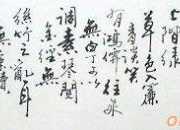 上階绿
草色入簾
青談笑
有鴻儒往来
無白丁可以
調素琴閱
金經無
絲竹之亂耳
無案牘